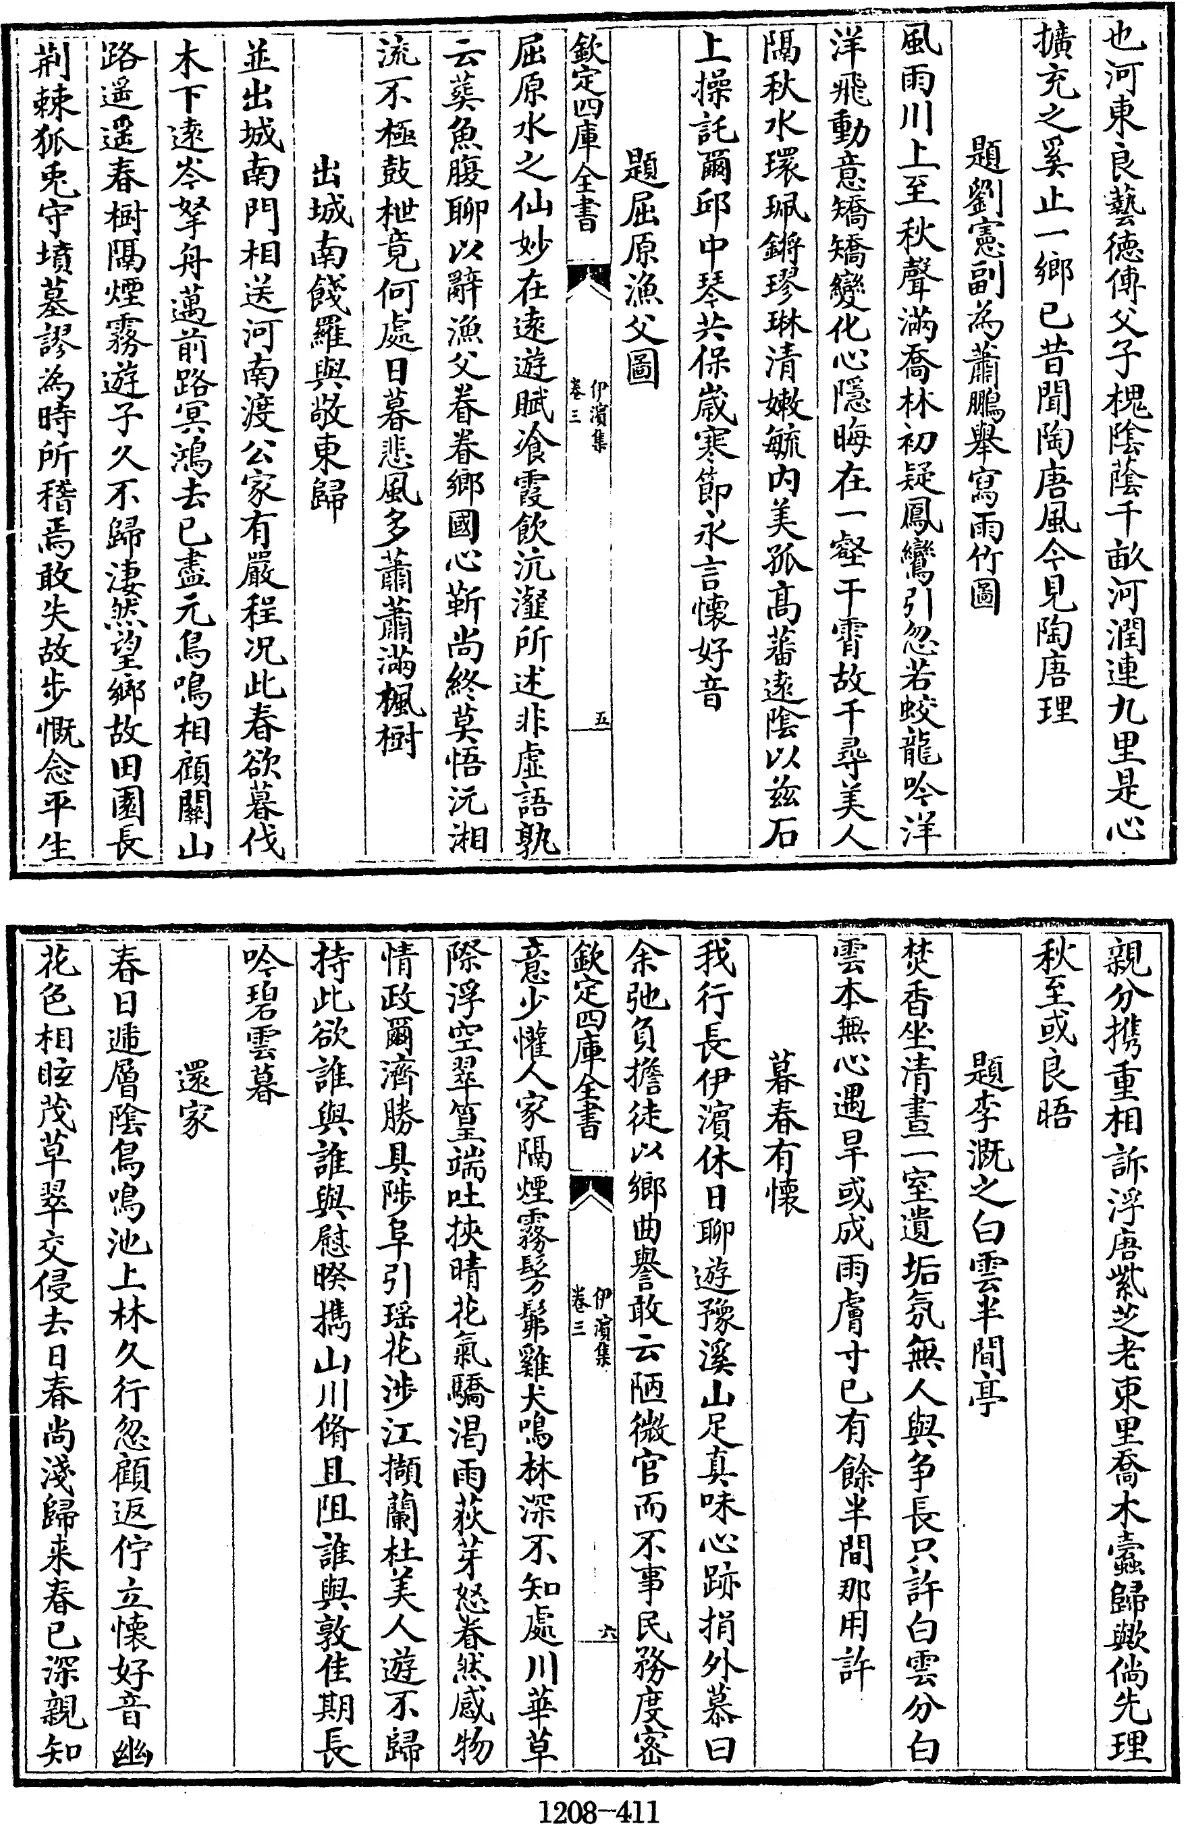 也河東良藝德傳父子槐陰蔭千畝河潤連九里是心
擴充之奚止一鄉已昔聞陶唐風今見陶唐理
題劉憲副為蕭鵬舉寫雨竹圖
風雨川上至秋聲滿喬林初疑鳳鸞引忽若蛟龍吟洋
洋飛動意矯矯變化心隱晦在一壑干霄故千尋美人
隔秋水環珮鏘璆琳清嫩毓内美孤髙蕃遠陰以兹石
上操託爾邱中琴共保歲寒節永言懷好音
題屈原漁父圖
欽定四庫全書
伊濱集
卷三
五
屈原水之仙妙在遠遊賦飡霞飲沆瀣所述非虛語孰
云葬魚腹聊以辭漁父眷眷鄉國心靳尚終莫悟沅湘
流不極鼓枻竟何處日暮悲風多蕭蕭滿楓樹
出城南餞羅與敬東歸
並出城南門相送河南渡公家有嚴程况此春欲暮伐
木下遠岑拏舟邁前路冥鴻去已盡元鳥鳴相顧關山
路遥遥春樹隔煙霧遊子久不歸淒然望鄉故田園長
荆棘狐兎守墳墓謬為時所稽焉敢失故步慨念平生
親分携重相訴浮唐紫芝老東里喬木蠹歸歟倘先理
秋至或良晤
題李溉之白雲半間亭
焚香坐清晝一室遺垢氛無人與争長只許白雲分白
雲本無心遇旱或成雨膚寸已有餘半間那用許
暮春有懷
我行長伊濱休日聊遊豫溪山足真味心跡捐外慕曰
余弛負擔徒以鄉曲譽敢云陋微官而不事民務度密
欽定四庫全書
伊濱集
卷三
六
意少懽人家隔煙霧髣髴雞犬鳴林深不知處川華草
際浮空翠篁端吐挾晴花氣驕渴雨荻芽怒眷然感物
情政爾濟勝具陟阜引瑶花涉江擷蘭杜美人遊不歸
持此欲誰與誰與慰暌携山川脩且阻誰與敦佳期長
吟碧雲暮
還家
春日遞層陰鳥鳴池上林久行忽顧返佇立懷好音幽
花色相眩茂草翠交侵去日春尚淺歸来春已深親知
1208-411